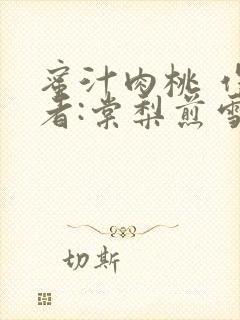 蜜汁肉桃 作
者:棠梨煎雪
切斯